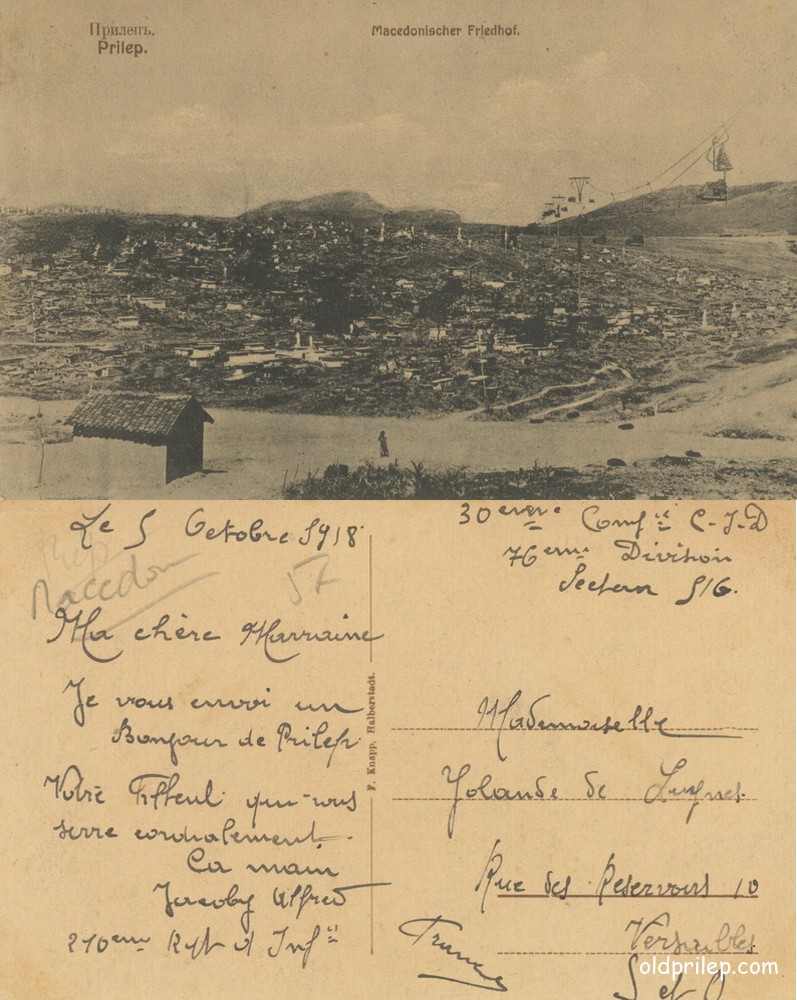 Прилепъ.
Prilep.
Macedonischer Friedhof.
Le 5 Octobre 1918
30eme Compie C-I-D
76eme Division
Secteur 516.
Macedon
57
Ma chère Marraine
Je vous envoi un
Bonjour de Prilep
Votre Filleul qui vous
serre cordialement
La main
Jacoby Alfred
210eme Rgt d'Infie
F. Knapp, Halberstadt.
Mademoiselle
Yolande de Luynes
Rue des Reservoirs 10
Versailles
S et O
France
oldprilep.com